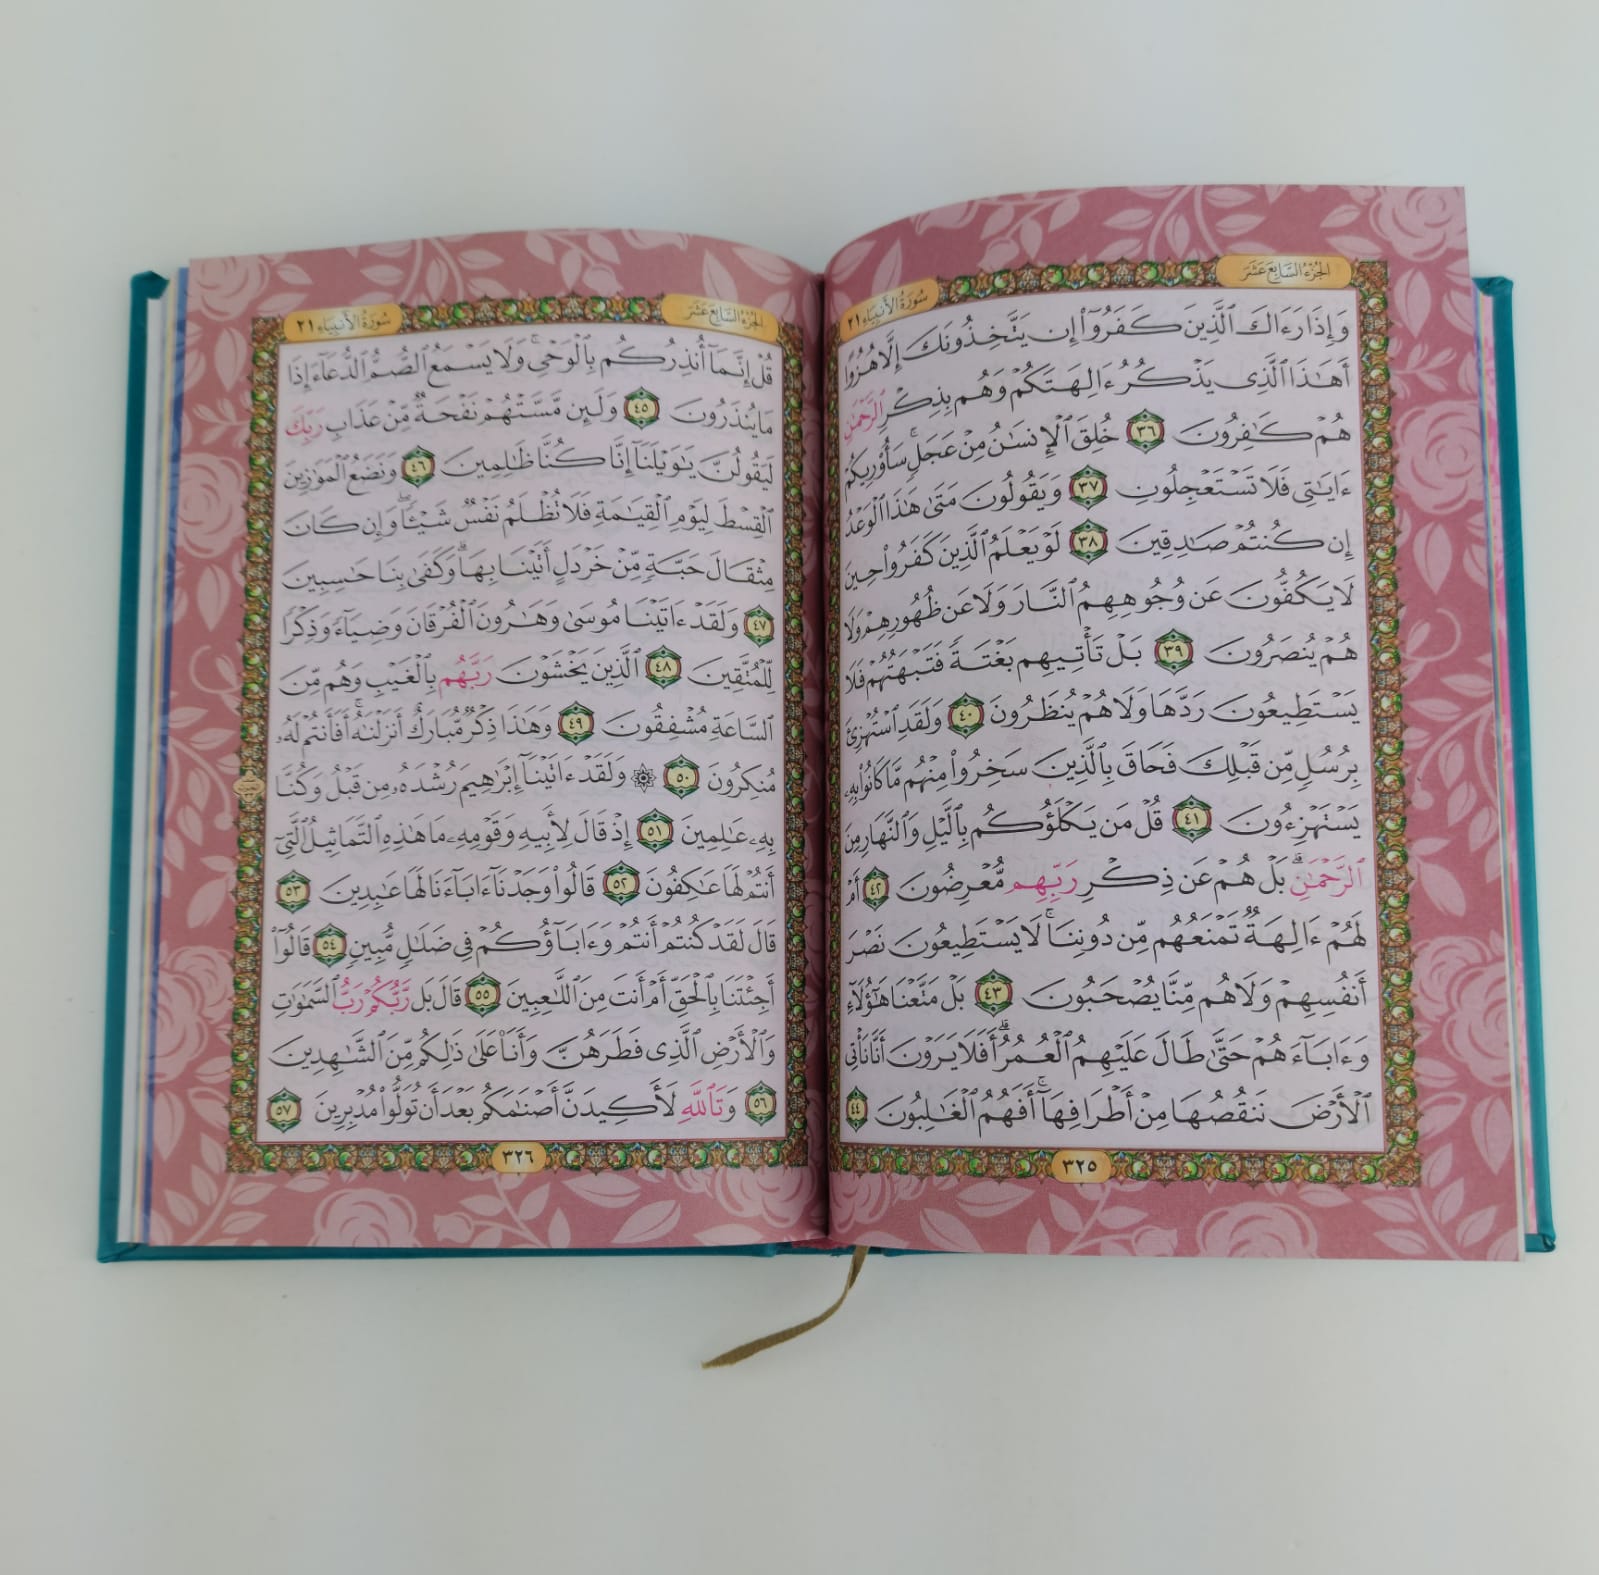 الجزء السابع عشر
سورة الأنبياء ٢١
وَإِذَا رَءَاكَ ٱلَّذِينَ كَفَرُوٓا۟ إِن يَتَّخِذُونَكَ إِلَّا هُزُوًا
أَهَـٰذَا ٱلَّذِى يَذْكُرُ ءَالِهَتَكُمْ وَهُم بِذِكْرِ ٱلرَّحْمَـٰنِ
هُمْ كَـٰفِرُونَ ٣٦ خُلِقَ ٱلْإِنسَـٰنُ مِنْ عَجَلٍ ۚ سَأُو۟رِيكُمْ
ءَايَـٰتِى فَلَا تَسْتَعْجِلُونِ ٣٧ وَيَقُولُونَ مَتَىٰ هَـٰذَا ٱلْوَعْدُ
إِن كُنتُمْ صَـٰدِقِينَ ٣٨ لَوْ يَعْلَمُ ٱلَّذِينَ كَفَرُوا۟ حِينَ
لَا يَكُفُّونَ عَن وُجُوهِهِمُ ٱلنَّارَ وَلَا عَن ظُهُورِهِمْ وَلَا
هُمْ يُنصَرُونَ ٣٩ بَلْ تَأْتِيهِم بَغْتَةً فَتَبْهَتُهُمْ فَلَا
يَسْتَطِيعُونَ رَدَّهَا وَلَا هُمْ يُنظَرُونَ ٤٠ وَلَقَدِ ٱسْتُهْزِئَ
بِرُسُلٍ مِّن قَبْلِكَ فَحَاقَ بِٱلَّذِينَ سَخِرُوا۟ مِنْهُم مَّا كَانُوا۟ بِهِۦ
يَسْتَهْزِءُونَ ٤١ قُلْ مَن يَكْلَؤُكُم بِٱلَّيْلِ وَٱلنَّهَارِ مِنَ
ٱلرَّحْمَـٰنِ ۗ بَلْ هُمْ عَن ذِكْرِ رَبِّهِم مُّعْرِضُونَ ٤٢ أَمْ
لَهُمْ ءَالِهَةٌ تَمْنَعُهُم مِّن دُونِنَا ۚ لَا يَسْتَطِيعُونَ نَصْرَ
أَنفُسِهِمْ وَلَا هُم مِّنَّا يُصْحَبُونَ ٤٣ بَلْ مَتَّعْنَا هَـٰٓؤُلَآءِ
وَءَابَآءَهُمْ حَتَّىٰ طَالَ عَلَيْهِمُ ٱلْعُمُرُ ۗ أَفَلَا يَرَوْنَ أَنَّا نَأْتِى
ٱلْأَرْضَ نَنقُصُهَا مِنْ أَطْرَافِهَآ ۚ أَفَهُمُ ٱلْغَـٰلِبُونَ ٤٤
٣٢٥
الجزء السابع عشر
سورة الأنبياء ٢١
قُلْ إِنَّمَآ أُنذِرُكُم بِٱلْوَحْىِ ۚ وَلَا يَسْمَعُ ٱلصُّمُّ ٱلدُّعَآءَ إِذَا
مَا يُنذَرُونَ ٤٥ وَلَئِن مَّسَّتْهُمْ نَفْحَةٌ مِّنْ عَذَابِ رَبِّكَ
لَيَقُولُنَّ يَـٰوَيْلَنَآ إِنَّا كُنَّا ظَـٰلِمِينَ ٤٦ وَنَضَعُ ٱلْمَوَٰزِينَ
ٱلْقِسْطَ لِيَوْمِ ٱلْقِيَـٰمَةِ فَلَا تُظْلَمُ نَفْسٌ شَيْـًٔا ۖ وَإِن كَانَ
مِثْقَالَ حَبَّةٍ مِّنْ خَرْدَلٍ أَتَيْنَا بِهَا ۗ وَكَفَىٰ بِنَا حَـٰسِبِينَ
٤٧ وَلَقَدْ ءَاتَيْنَا مُوسَىٰ وَهَـٰرُونَ ٱلْفُرْقَانَ وَضِيَآءً وَذِكْرًا
لِّلْمُتَّقِينَ ٤٨ ٱلَّذِينَ يَخْشَوْنَ رَبَّهُم بِٱلْغَيْبِ وَهُم مِّنَ
ٱلسَّاعَةِ مُشْفِقُونَ ٤٩ وَهَـٰذَا ذِكْرٌ مُّبَارَكٌ أَنزَلْنَـٰهُ ۚ أَفَأَنتُمْ لَهُۥ
مُنكِرُونَ ٥٠ ۞ وَلَقَدْ ءَاتَيْنَآ إِبْرَٰهِيمَ رُشْدَهُۥ مِن قَبْلُ وَكُنَّا
بِهِۦ عَـٰلِمِينَ ٥١ إِذْ قَالَ لِأَبِيهِ وَقَوْمِهِۦ مَا هَـٰذِهِ ٱلتَّمَاثِيلُ ٱلَّتِىٓ
أَنتُمْ لَهَا عَـٰكِفُونَ ٥٢ قَالُوا۟ وَجَدْنَآ ءَابَآءَنَا لَهَا عَـٰبِدِينَ ٥٣
قَالَ لَقَدْ كُنتُمْ أَنتُمْ وَءَابَآؤُكُمْ فِى ضَلَـٰلٍ مُّبِينٍ ٥٤ قَالُوٓا۟
أَجِئْتَنَا بِٱلْحَقِّ أَمْ أَنتَ مِنَ ٱللَّـٰعِبِينَ ٥٥ قَالَ بَل رَّبُّكُمْ رَبُّ ٱلسَّمَـٰوَٰتِ
وَٱلْأَرْضِ ٱلَّذِى فَطَرَهُنَّ وَأَنَا۠ عَلَىٰ ذَٰلِكُم مِّنَ ٱلشَّـٰهِدِينَ
٥٦ وَتَٱللَّهِ لَأَكِيدَنَّ أَصْنَـٰمَكُم بَعْدَ أَن تُوَلُّوا۟ مُدْبِرِينَ ٥٧
٣٢٦